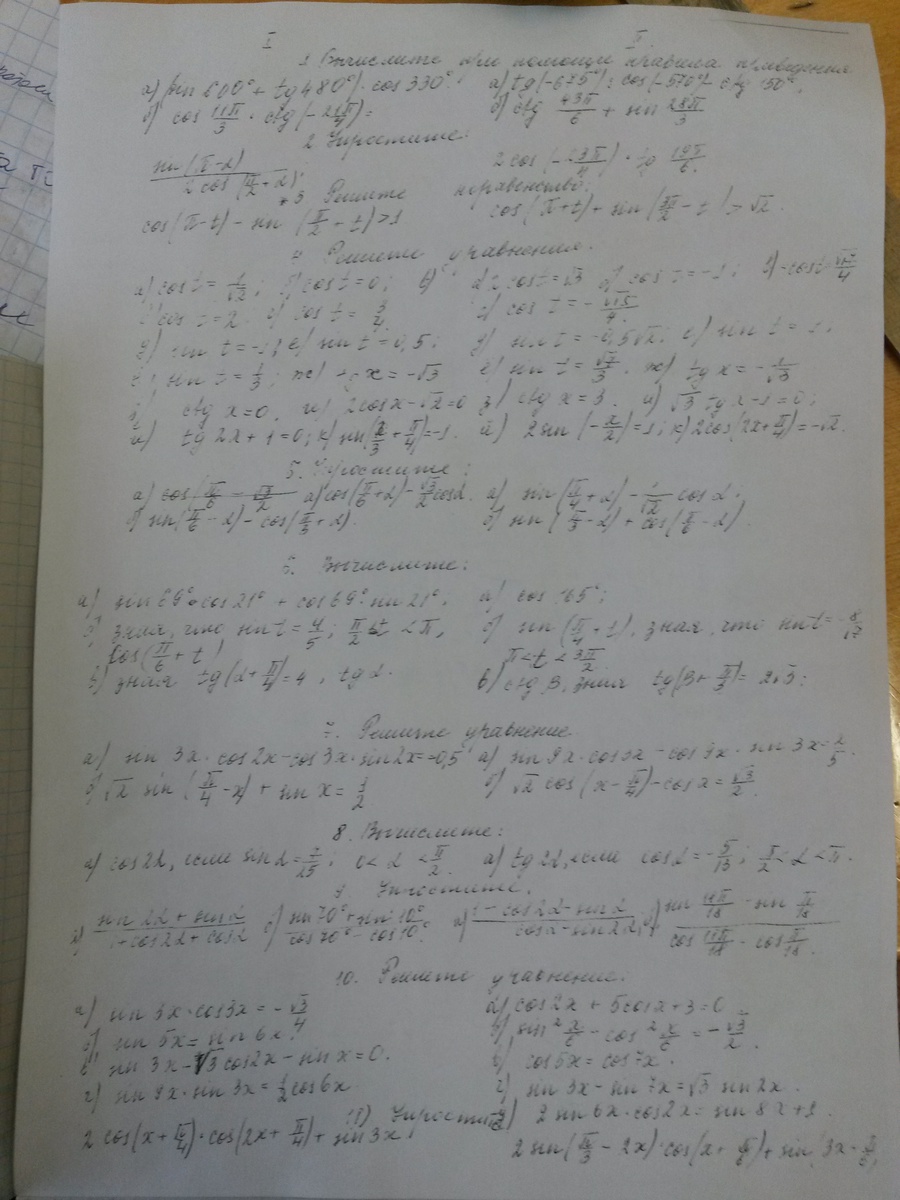 I II
1 Вычислите при помощи правила приведения
а) (sin 600° + tg 480°) · cos 330°; а) tg(-675°) : cos(-570°) - ctg 150°;
б) cos 11π/3 · ctg(-21π/4) = б) ctg 43π/6 + sin 28π/3
2 Упростите:
sin(π-α) / 2cos(π/2+α); 2cos(-23π/4) · tg 19π/6.
*3 Решите неравенство:
cos(π-t) - sin(π/2+t) > 1 cos(π+t) + sin(3π/2-t) > √2.
4 Решите уравнения.
а) cos t = 1/√2; б) cos t = 0; в) cos t = √3 cos t = -1; -cos t √17/4
cos t = 2 cos t = 3/4 г) cos t = -√15/4.
sin t = -1; е) sin t = 0,5; д) sin t = -0,5√2; е) sin t = 1.
sin t = 1/3; ж) tg x = -√3 ё) sin t = √7/3. ж) tg x = -1/√3
ctg x = 0. и) 2cos x - √2 = 0 з) ctg x = 3. и) √3 tg x - 1 = 0;
й) tg 2x + 1 = 0; к) sin(x/3 + π/4) = -1. й) 2 sin(-x/2) = 1; к) 2cos(2x + π/4) = -√2.
5. Упростите:
а) cos(π/6 = √3/2 а) cos(π/6 + α) - √3/2 cos α. а) sin(π/4 + α) - 1/√2 cos α;
б) sin(π/6 - α) - cos(π/3 + α). б) sin(π/3 - α) + cos(π/6 - α).
6. Вычислите:
а) sin 69° cos 21° + cos 69° · sin 21°; а) cos 165°;
б) зная, что sin t = 4/5; π/2 < t < π, б) sin(π/4 + t), зная, что sin t = -8/17
cos(π/6 + t) π < t < 3π/2.
в) зная tg(α + π/4) = 4, tg α. в) ctg β, зная tg(β + π/3) = 2√3;
7. Решите уравнение
а) sin 3x · cos 2x - cos 3x · sin 2x = -0,5 а) sin 9x · cos 3x - cos 9x · sin 3x = 2/5.
б) √2 sin(π/4 - x) + sin x = 1/2 б) √2 cos(x - π/4) - cos x = √3/2.
8. Вычислите:
а) cos 2α, если sin α = 7/25; 0 < α < π/2. а) tg 2α, если cos α = -5/13; π/2 < α < π.
9 Упростите.
а) sin 2α + sin α / 1 + cos 2α + cos α б) sin 70° + sin 10° / cos 70° - cos 10°. а) 1 - cos 2α - sin α / cos α - sin 2α; б) sin 11π/18 - sin π/18 / cos 11π/18 - cos π/18.
10. Решите уравнение.
а) sin 3x · cos 3x = -√3/4 а) cos 2x + 5cos x + 3 = 0
б) sin 5x = sin 6x. б) sin² x/6 - cos² x/6 = -√3/2.
в) sin 3x - √3 cos 2x - sin x = 0. в) cos 5x = cos 7x.
г) sin 9x · sin 3x = 1/2 cos 6x г) sin 3x - sin 7x = √3 sin 2x.
11) Упростите 2 sin 6x · cos 2x = sin 8x + 1
2 cos(x + π/4) · cos(2x + π/4) + sin 3x 2 sin(π/3 - 2x) · cos(x + π/6) + sin